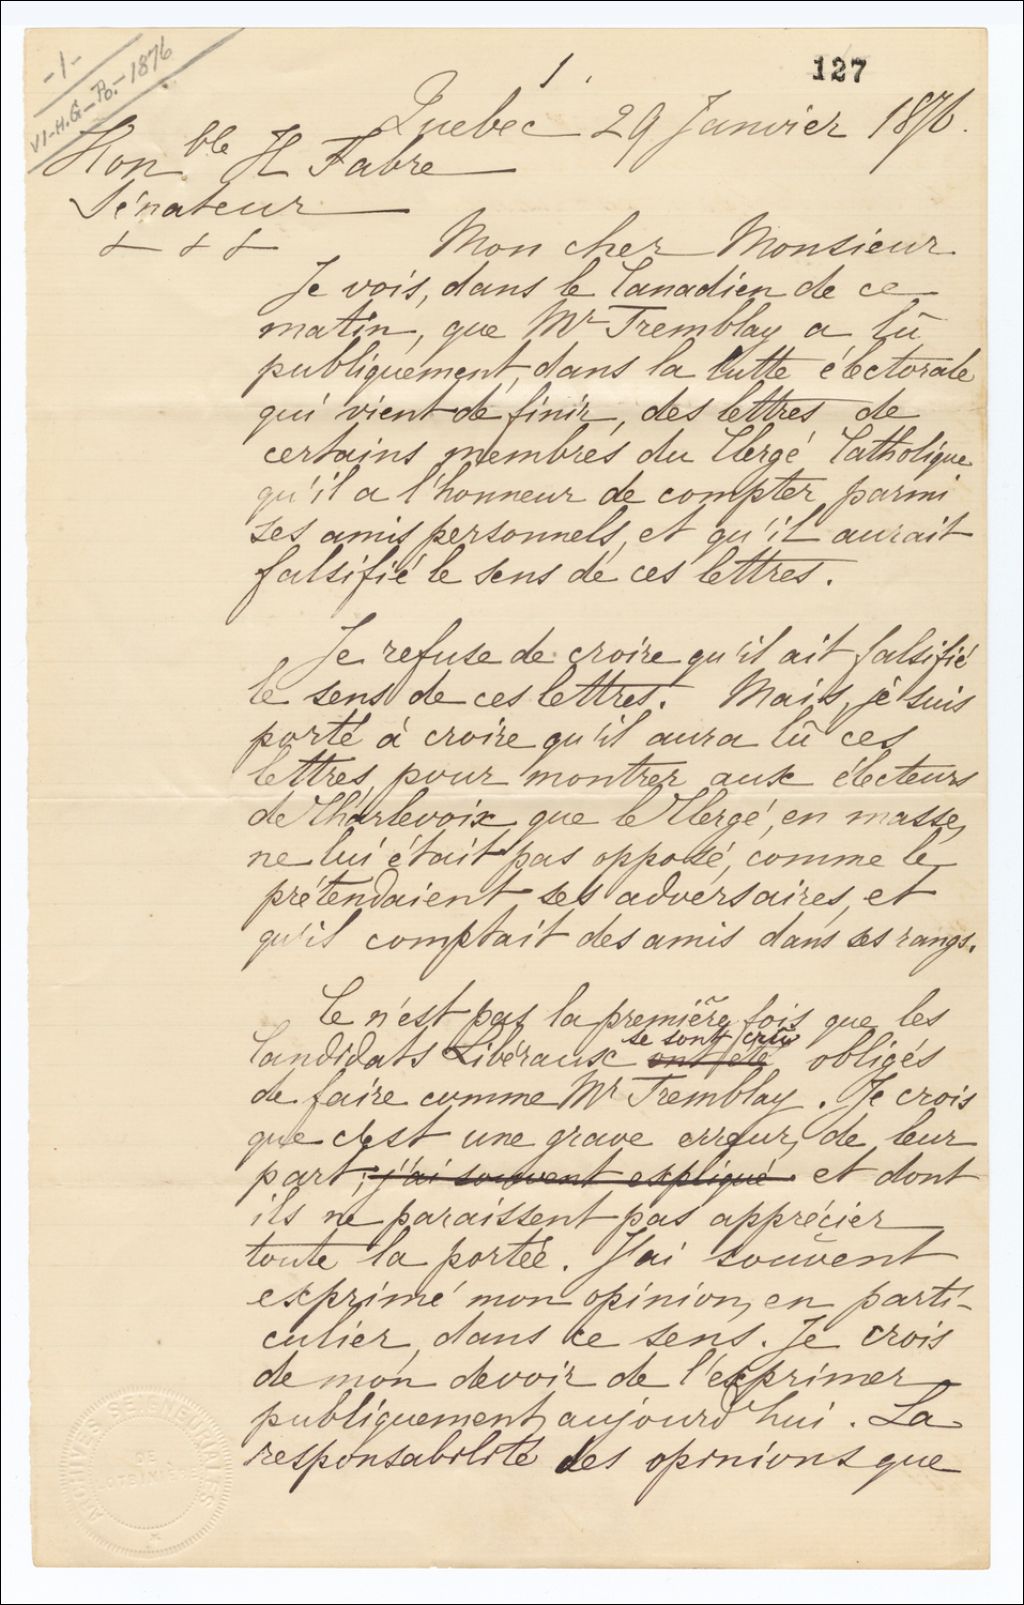 -1-
VI-H.G-Po.-1876
1.
127
Québec 29 Janvier 1876.
Honble H Fabre
Sénateur
Mon cher Monsieur
Je vois, dans le Canadien de ce
matin, que Mr Tremblay a lû
publiquement, dans la lutte électorale
qui vient de finir, des lettres de
certains membres du Clergé Catholique
qu'il a l'honneur de compter parmi
ses amis personnels, et qu'il aurait
falsifié le sens de ces lettres.
Je refuse de croire qu'il ait falsifié
le sens de ces lettres. Mais, je suis
porté à croire qu'il aura lû ces
lettres, pour montrer aux électeurs
de Charlevoix que le Clergé, en masse,
ne lui était pas opposé, comme le
prétendaient ses adversaires, et
qu'il comptait des amis dans ses rangs.
Ce n'est pas la première fois que les
se sont crûs
Candidats Libéraux ont été obligés
de faire comme Mr Tremblay. Je crois
que c'est une grave erreur, de leur
part, j'ai souvent expliqué et dont
ils ne paraissent pas apprécier
toute la portée. J'ai souvent
exprimé mon opinion, en parti-
culier, dans ce sens. Je crois
de mon devoir de l'exprimer
publiquement aujourd'hui. La
responsabilité des opinions que
ARCHIVES SEIGNEURIALES